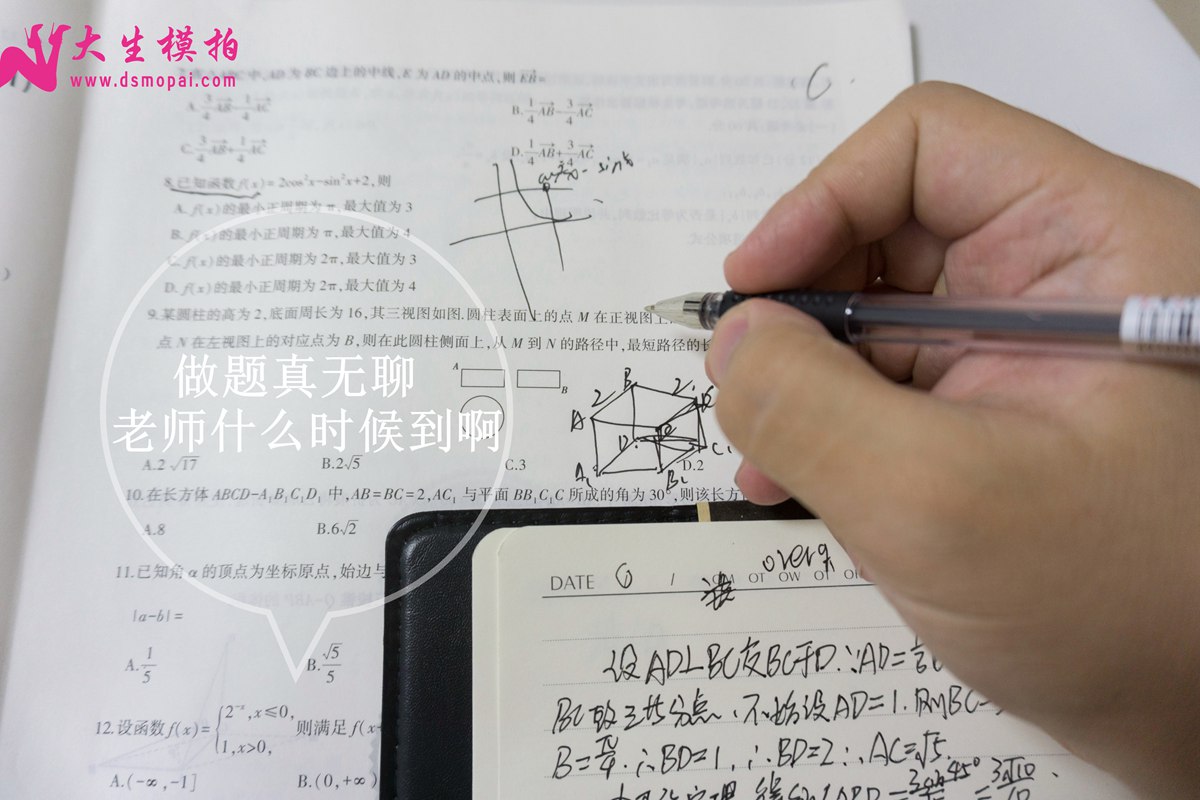 大生模拍
www.dsmopai.com
中,AD为BC边上的中线,E为AD的中点,则EB=
A.3/4AB-1/4AC
B.1/4AB-3/4AC
C.3/4AB+1/4AC
D.1/4AB+3/4AC
C
8.已知函数f(x)=2cos²x-sin²x+2,则
A.f(x)的最小正周期为π,最大值为3
B.f(x)的最小正周期为π,最大值为4
C.f(x)的最小正周期为2π,最大值为3
D.f(x)的最小正周期为2π,最大值为4
9.某圆柱的高为2,底面周长为16,其三视图如图.圆柱表面上的点M在正视图上
点N在左视图上的对应点为B,则在此圆柱侧面上,从M到N的路径中,最短路径的长
A
B
做题真无聊
老师什么时候到啊
B
2
2
A
A₁
B₁
C₁
A.2√17
B.2√5
C.3
D.2
10.在长方体ABCD-A₁B₁C₁D₁中,AB=BC=2,AC₁与平面BB₁C₁C所成的角为30°,则该长方
A.8
B.6√2
11.已知角α的顶点为坐标原点,始边与
|a-b|=
A.1/5
B.√5/5
12.设函数f(x)={2⁻ˣ,x≤0, 1,x>0, 则满足f(x+
A.(-∞,-1]
B.(0,+∞)
DATE 6 /
OT OW OT
设AD⊥BC交BC于D.∵AD=1/3
BC的三等分点.不妨设AD=1.则BC=
B=π/4.∴BD=1,∴BD=2∴AC=√5.
45° 3√10